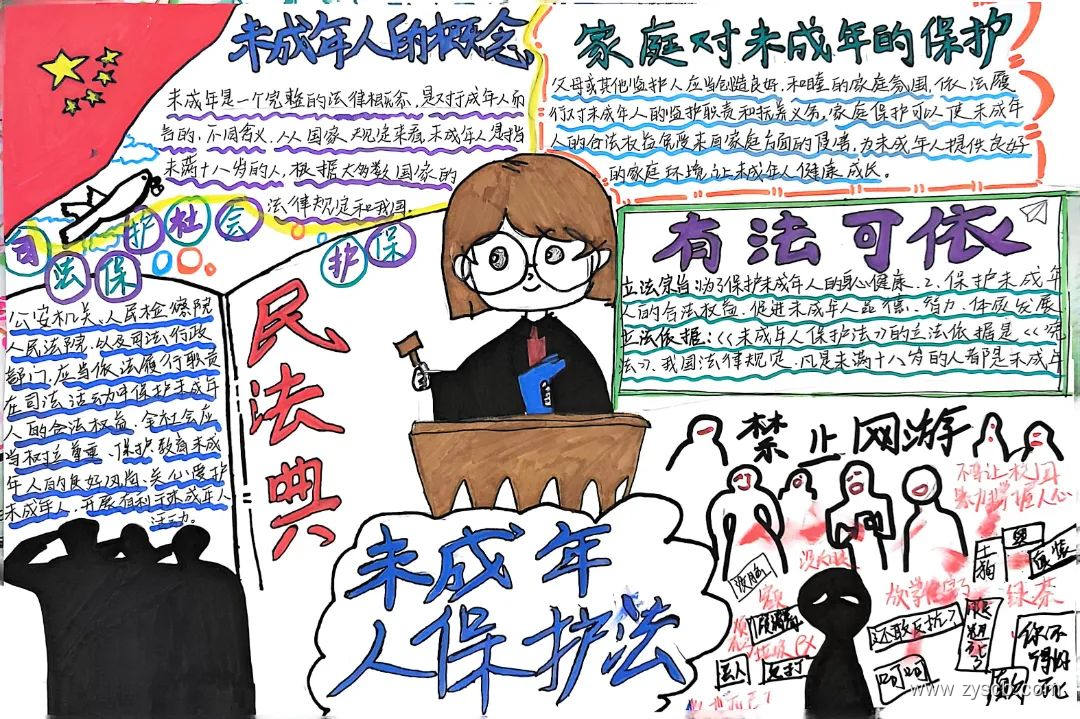 未成年人的概念
未成年是一个完整的法律概念，是对于成年人而
言的，不同含义，从从国家规定来看，未成年人是指
未满十八岁的人，根据大多数国家的
法律规定和我国。
家庭对未成年的保护
父母或其他监护人应当创造良好、和睦的家庭氛围，依法履
行对未成年人的监护职责和抚养义务，家庭保护可以使未成年
人的合法权益免受来自家庭方面的侵害，为未成年人提供良好
的家庭环境，让未成年人健康成长。
司法保护社会保护
公安机关、人民检察院
人民法院，以及司法行政
部门，应当依法履行职责
在司法活动中保护未成年
人的合法权益，全社会应
当树立尊重、保护、教育未成
年人的良好风尚，关心爱护
未成年人，开展有利于未成年人
活动。
民法典
有法可依
立法宗旨：为了保护未成年人的身心健康．2、保护未成年
人的合法权益．促进未成年人品德、智力、体质发展
立法依据：《未成年人保护法》的立法依据是《宪
法》．我国法律规定．凡是未满十八岁的人都是未成年
未成年
人保护法
禁止网游
不得让校园
暴力扩插人心
土狗
还敢反抗了
绿茶
你不
得好
死
丑人
呵呵
www.zyscb.com